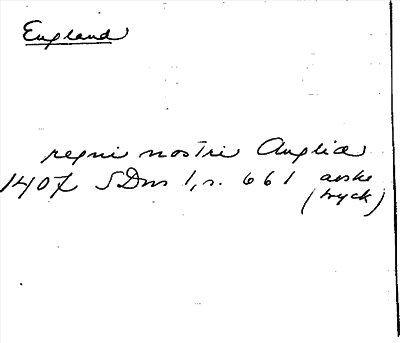 England
regni nostri Anglie
1407 SDns 1, s. 661 avskr
(tryck)